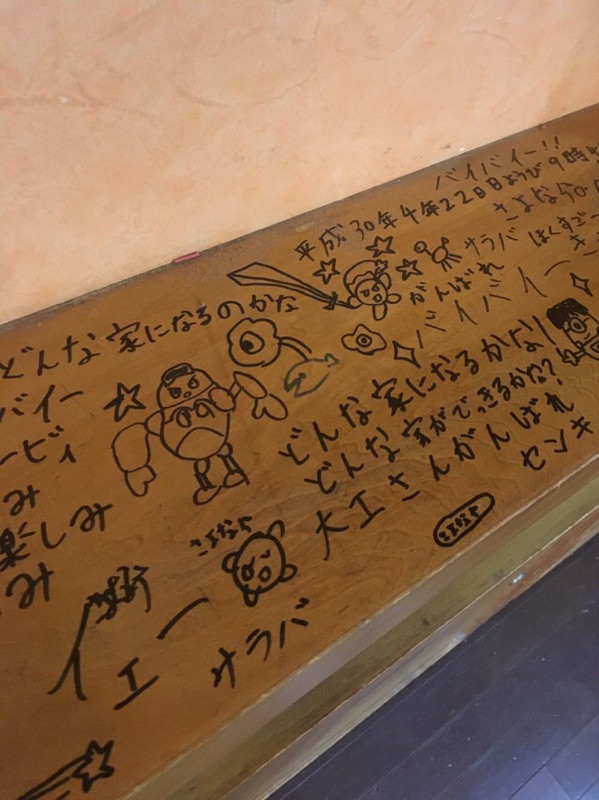 バイバイー!!
平成30年4年22日日ようび9時
さよなら
サラバ
ぼくすごー
がんばれ
バイバイー
どんな家になるのかな
バイー
ービィ
み
楽しみ
み
どんな家になるかな
どんな家ができるかな?
大工さんがんばれ
センキ
さよなら
さよなら
イエー
サラバ